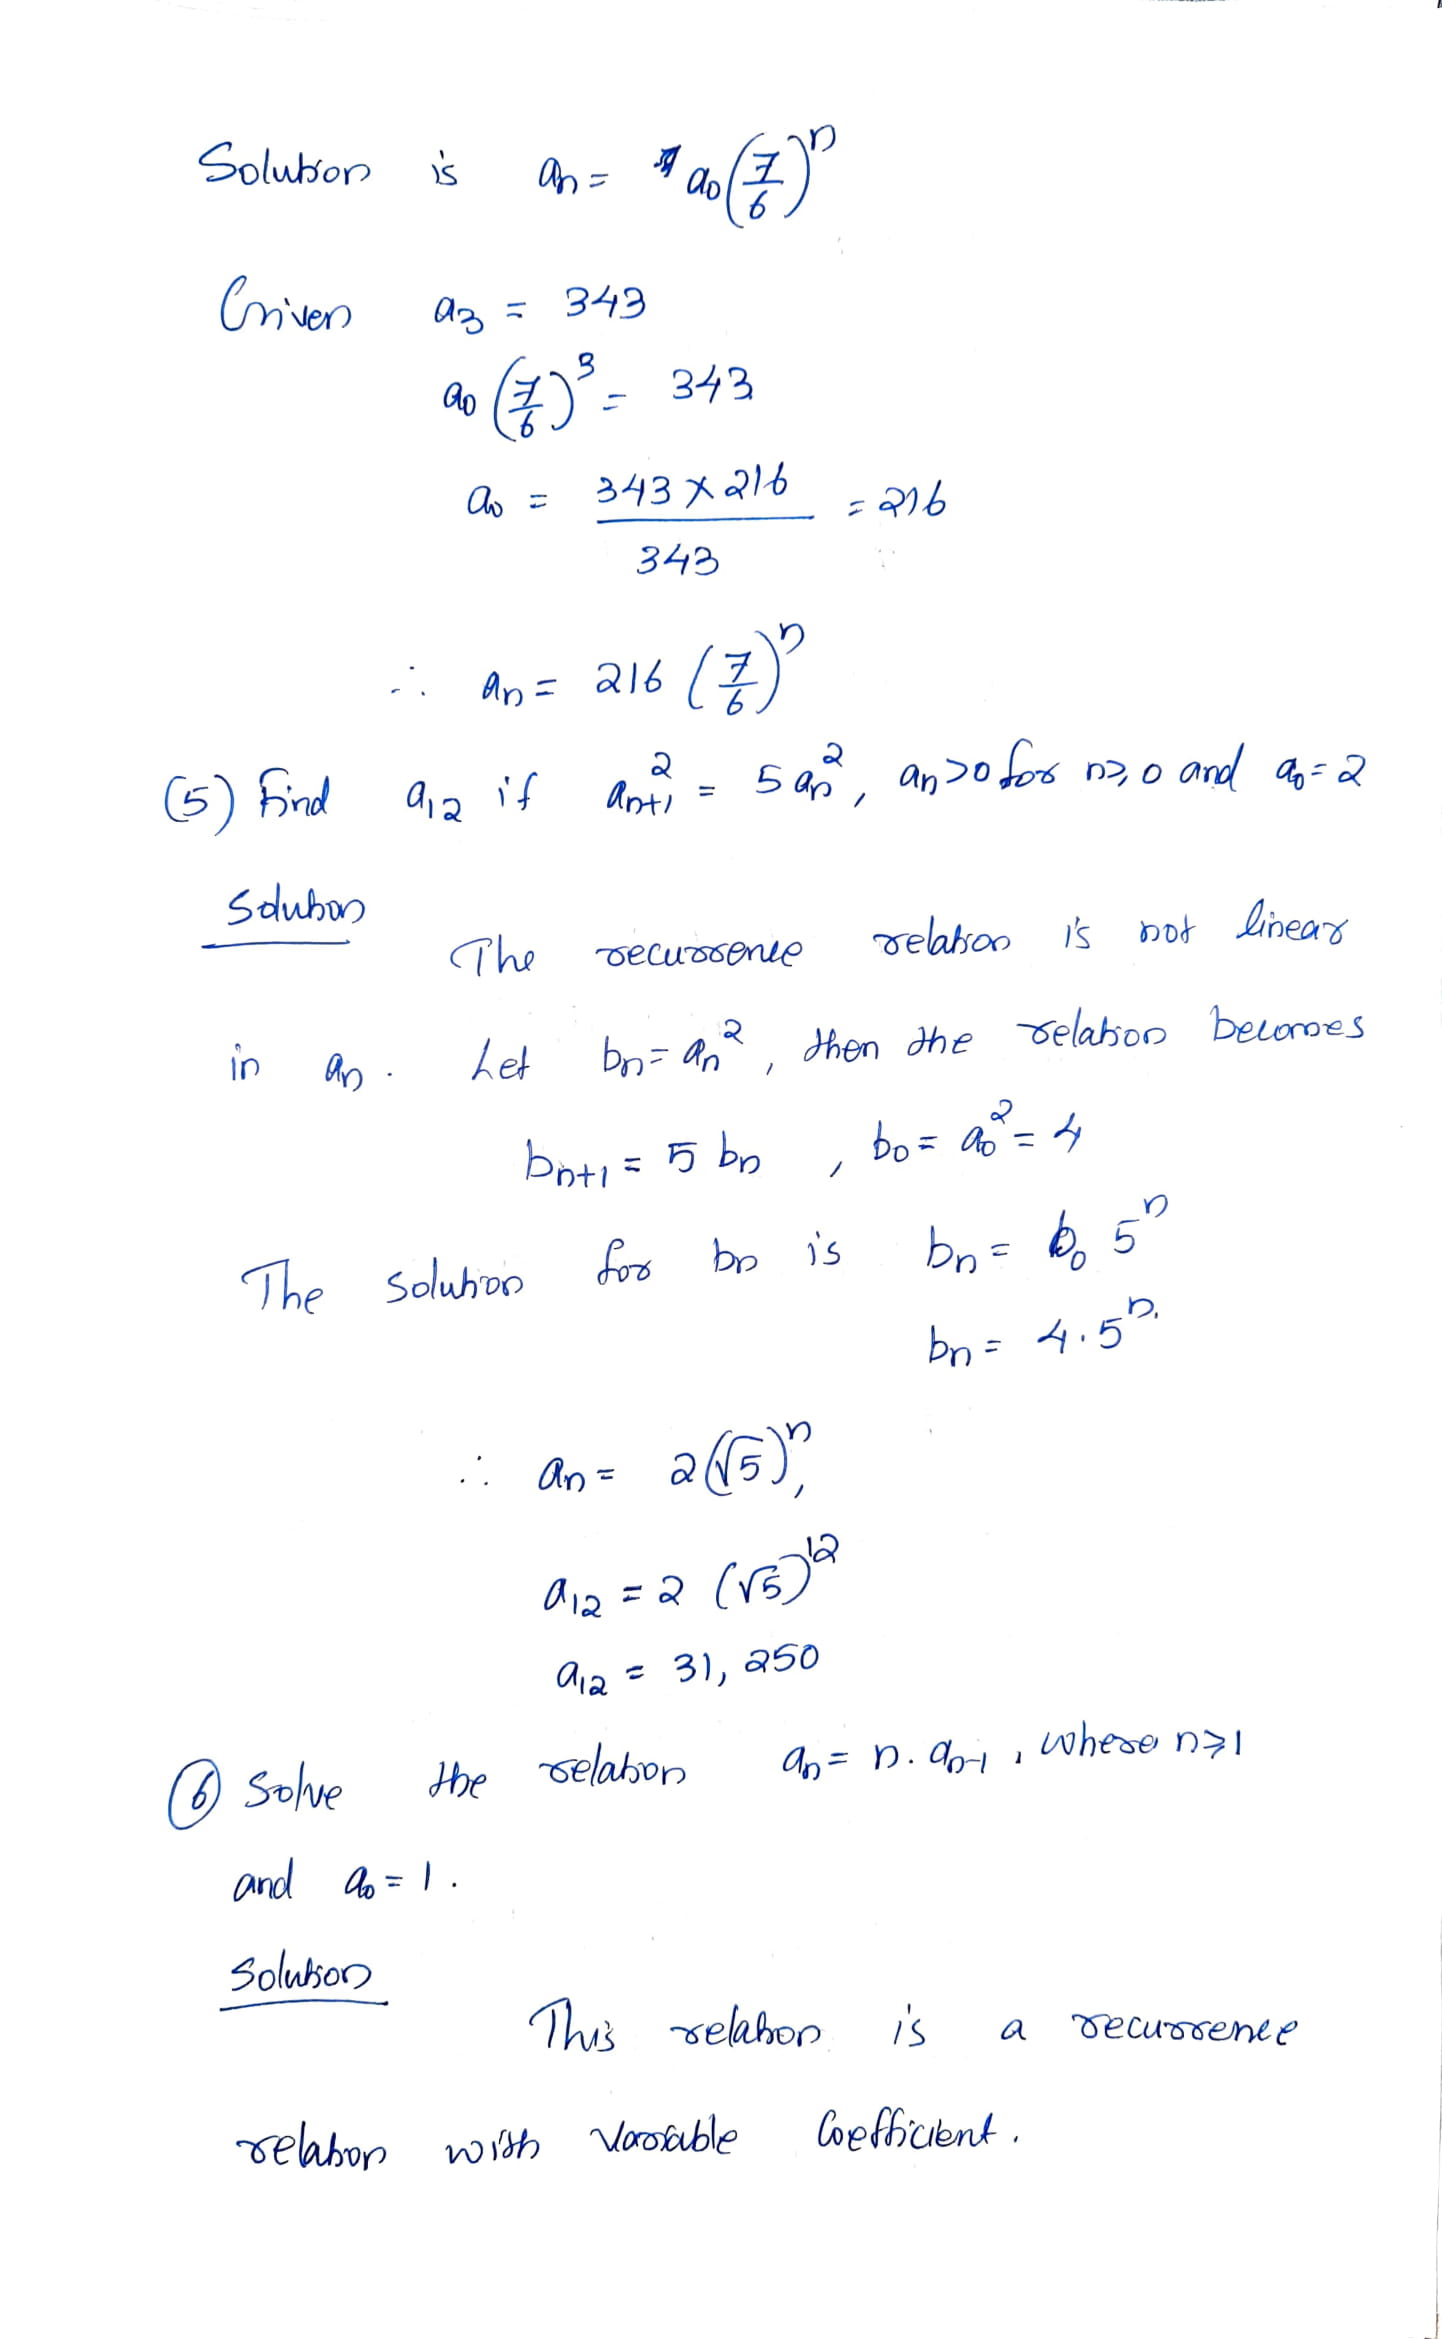 Solution is aₙ = a₀(7/6)ⁿ
Given a₃ = 343
a₀(7/6)³ = 343
a₀ = (343 × 216)/343 = 216
∴ aₙ = 216 (7/6)ⁿ
(5) Find a₁₂ if aₙ₊₁² = 5aₙ², aₙ>0 for n≥0 and a₀=2
Solution
The recurrence relation is not linear
in aₙ. Let bₙ = aₙ², then the relation becomes
bₙ₊₁ = 5 bₙ , b₀ = a₀² = 4
The solution for bₙ is bₙ = b₀ 5ⁿ
bₙ = 4.5ⁿ.
∴ aₙ = 2(√5)ⁿ,
a₁₂ = 2 (√5)¹²
a₁₂ = 31, 250
(6) Solve the relation aₙ = n.aₙ₋₁ , where n≥1
and a₀ = 1.
Solution
This relation is a recurrence
relation with Variable Coefficient.